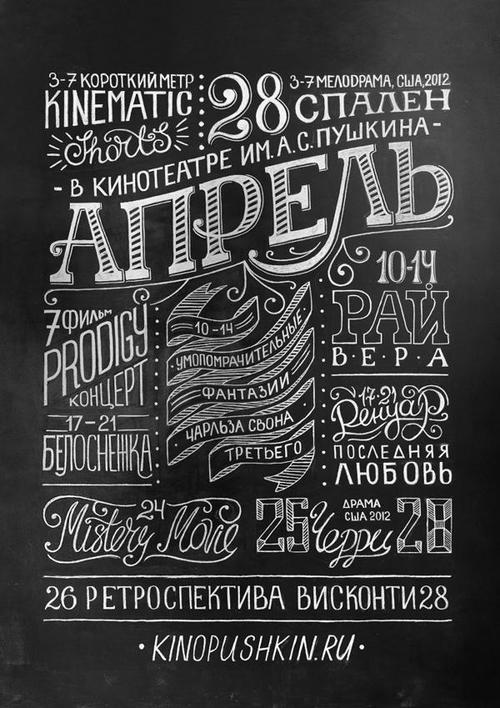 3-7 КОРОТКИЙ МЕТР
KINEMATIC
Shorts
3-7 МЕЛОДРАМА, США, 2012
28 СПАЛЕН
- В КИНОТЕАТРЕ ИМ. А.С. ПУШКИНА -
АПРЕЛЬ
7 ФИЛЬМ
PRODIGY
КОНЦЕРТ
17-21
БЕЛОСНЕЖКА
10-14
УМОПОМРАЧИТЕЛЬНЫЕ
ФАНТАЗИИ
ЧАРЛЬЗА СВОНА
ТРЕТЬЕГО
10-14
РАЙ
В·Е·Р·А
17-21
Ренуар
ПОСЛЕДНЯЯ
ЛЮБОВЬ
24
Mistery Movie
25 Черри 28
ДРАМА
США 2012
26 РЕТРОСПЕКТИВА ВИСКОНТИ 28
· KINOPUSHKIN.RU ·